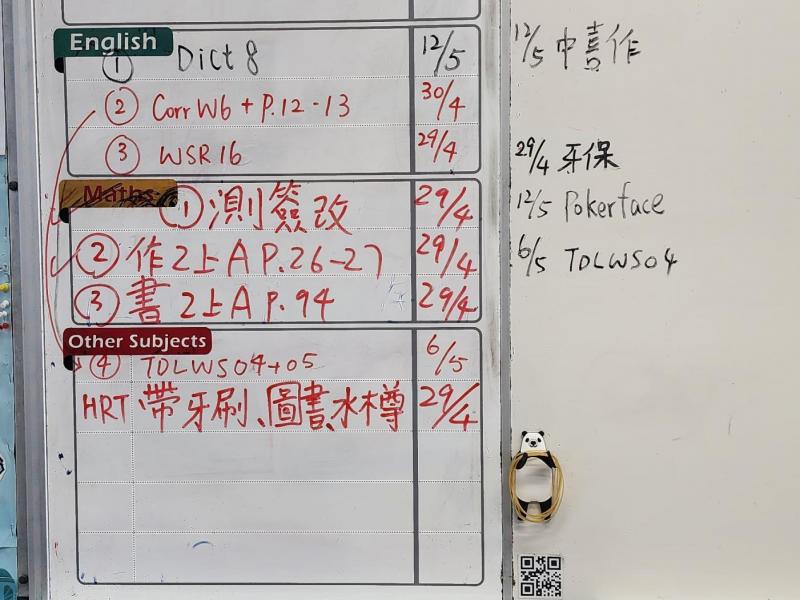 English
① Dict 8 12/5
② Corr W6 + P.12-13 30/4
③ WSR16 29/4
Maths
① 測簽改 29/4
② 作2上A P.26-27 29/4
③ 書2上A p.94 29/4
Other Subjects
④ TDLWS04+05 6/5
HRT、帶牙刷、圖書、水樽 29/4
12/5 中喜作
29/4 牙保
12/5 Pokerface
6/5 TDLWS04